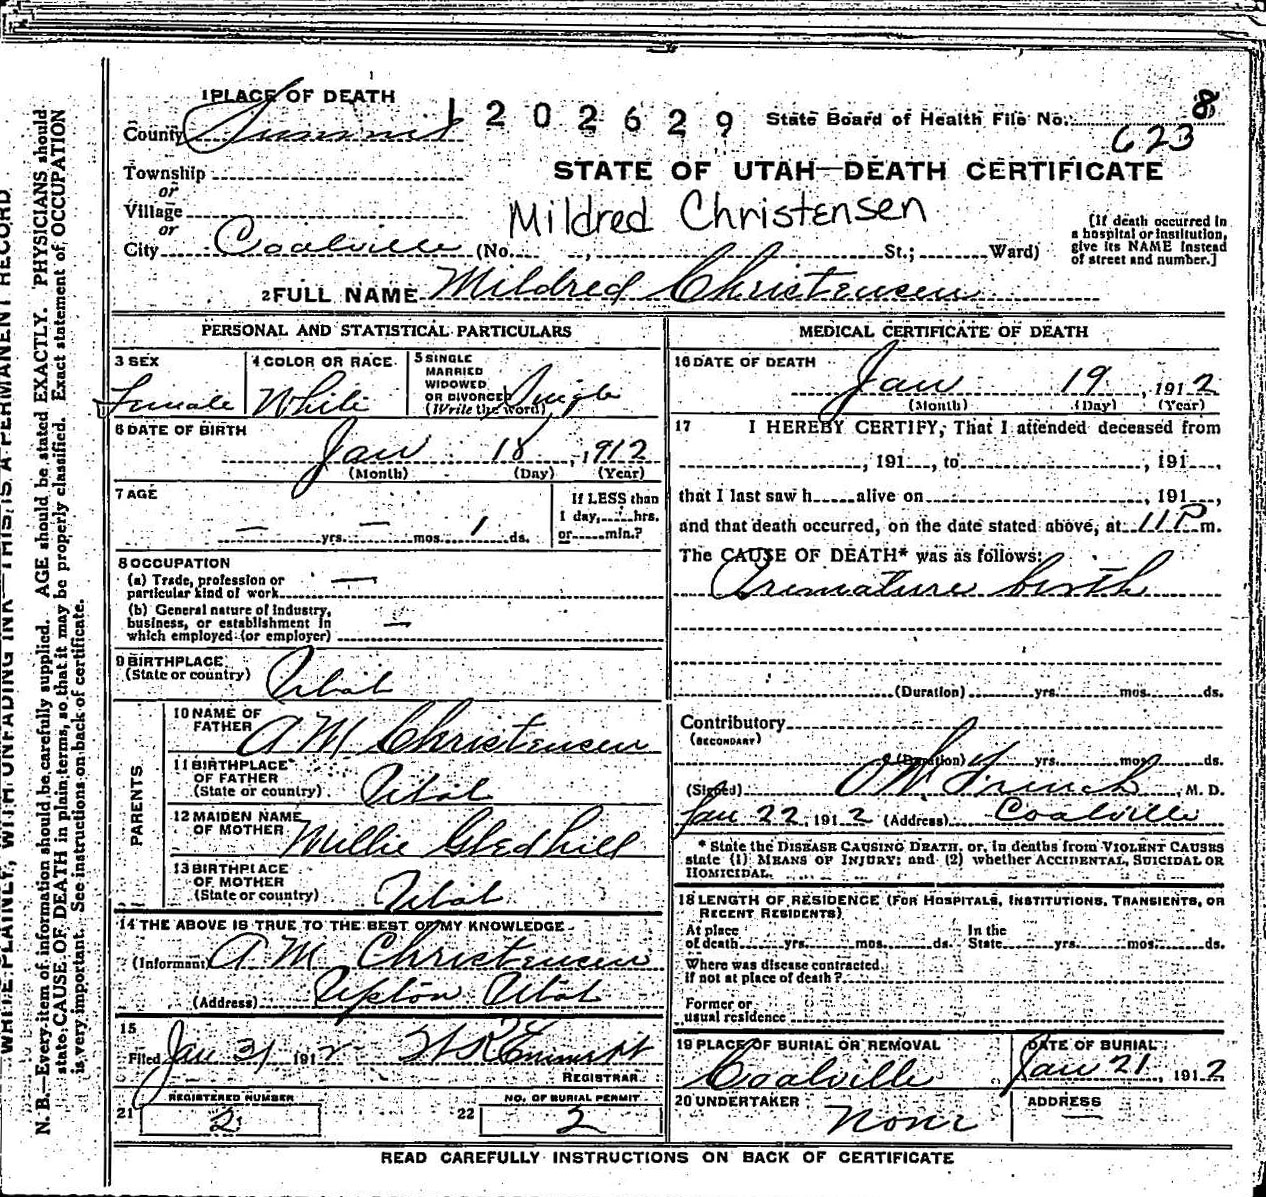 1 PLACE OF DEATH
1202629
State Board of Health File No. 8
623
County Summit
STATE OF UTAH—DEATH CERTIFICATE
Township
or
Village
or
Mildred Christensen
City Coalville (No. , St.; Ward)
(If death occurred in
a hospital or institution,
give its NAME instead
of street and number.]
2 FULL NAME Mildred Christensen
PERSONAL AND STATISTICAL PARTICULARS
3 SEX
Female
4 COLOR OR RACE
White
5 SINGLE
MARRIED
WIDOWED
OR DIVORCED
(Write the word)
Single
6 DATE OF BIRTH
Jan 18, 1912
(Month) (Day) (Year)
7 AGE
— yrs. — mos. 1 ds.
If LESS than
1 day, hrs.
or min.?
8 OCCUPATION
(a) Trade, profession or
particular kind of work —
(b) General nature of industry,
business, or establishment in
which employed (or employer) —
9 BIRTHPLACE
(State or country) Utah
PARENTS
10 NAME OF
FATHER A M Christensen
11 BIRTHPLACE
OF FATHER
(State or country) Utah
12 MAIDEN NAME
OF MOTHER Millie Gledhill
13 BIRTHPLACE
OF MOTHER
(State or country) Utah
14 THE ABOVE IS TRUE TO THE BEST OF MY KNOWLEDGE
(Informant) A M Christensen
(Address) Upton Utah
15
Filed Jan 31 1912
REGISTRAR
REGISTERED NUMBER
21 2
NO. OF BURIAL PERMIT
22 2
MEDICAL CERTIFICATE OF DEATH
16 DATE OF DEATH
Jan 19, 1912
(Month) (Day) (Year)
17 I HEREBY CERTIFY, That I attended deceased from
, 191 , to , 191 ,
that I last saw h alive on , 191 ,
and that death occurred, on the date stated above, at 11 P m.
The CAUSE OF DEATH* was as follows:
Premature birth
(Duration) yrs. mos. ds.
Contributory
(SECONDARY)
(Duration) yrs. mos. ds.
(Signed) French, M. D.
Jan 22, 1912 (Address) Coalville
* State the DISEASE CAUSING DEATH, or, in deaths from VIOLENT CAUSES
state (1) MEANS OF INJURY; and (2) whether ACCIDENTAL, SUICIDAL OR
HOMICIDAL.
18 LENGTH OF RESIDENCE (FOR HOSPITALS, INSTITUTIONS, TRANSIENTS, OR
RECENT RESIDENTS)
At place
of death yrs. mos. ds.
In the
State yrs. mos. ds.
Where was disease contracted
if not at place of death?
Former or
usual residence
19 PLACE OF BURIAL OR REMOVAL
Coalville
DATE OF BURIAL
Jan 21, 1912
20 UNDERTAKER
None
ADDRESS
—
READ CAREFULLY INSTRUCTIONS ON BACK OF CERTIFICATE
WRITE PLAINLY, WITH UNFADING INK—THIS IS A PERMANENT RECORD
N. B.—Every item of information should be carefully supplied. AGE should be stated EXACTLY. PHYSICIANS should
state CAUSE OF DEATH in plain terms, so that it may be properly classified. Exact statement of OCCUPATION
is very important. See instructions on back of certificate.